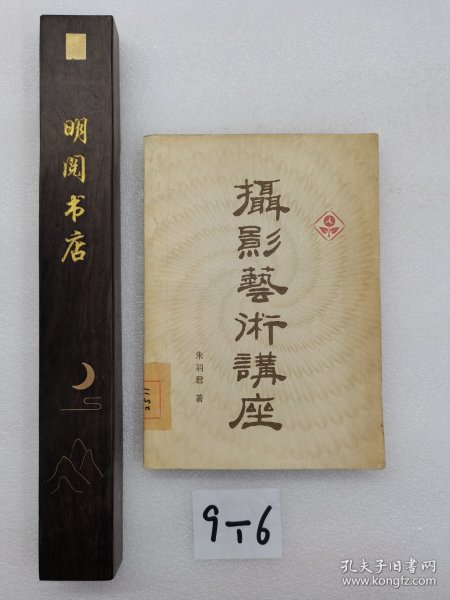 明阅书店
攝影藝術講座
朱羽君 著
9-6
孔夫子旧书网
www.kongfz.com